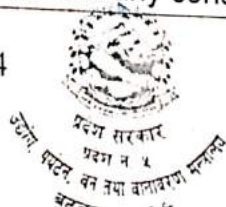 4
प्रदेश सरकार
प्रदेश नं ५
उद्योग, पर्यटन, वन तथा वातावरण मन्त्रालय